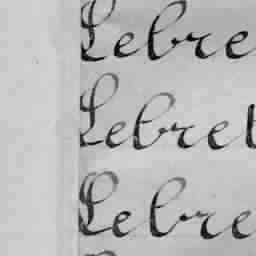 Lebre
Lebret
Lebre